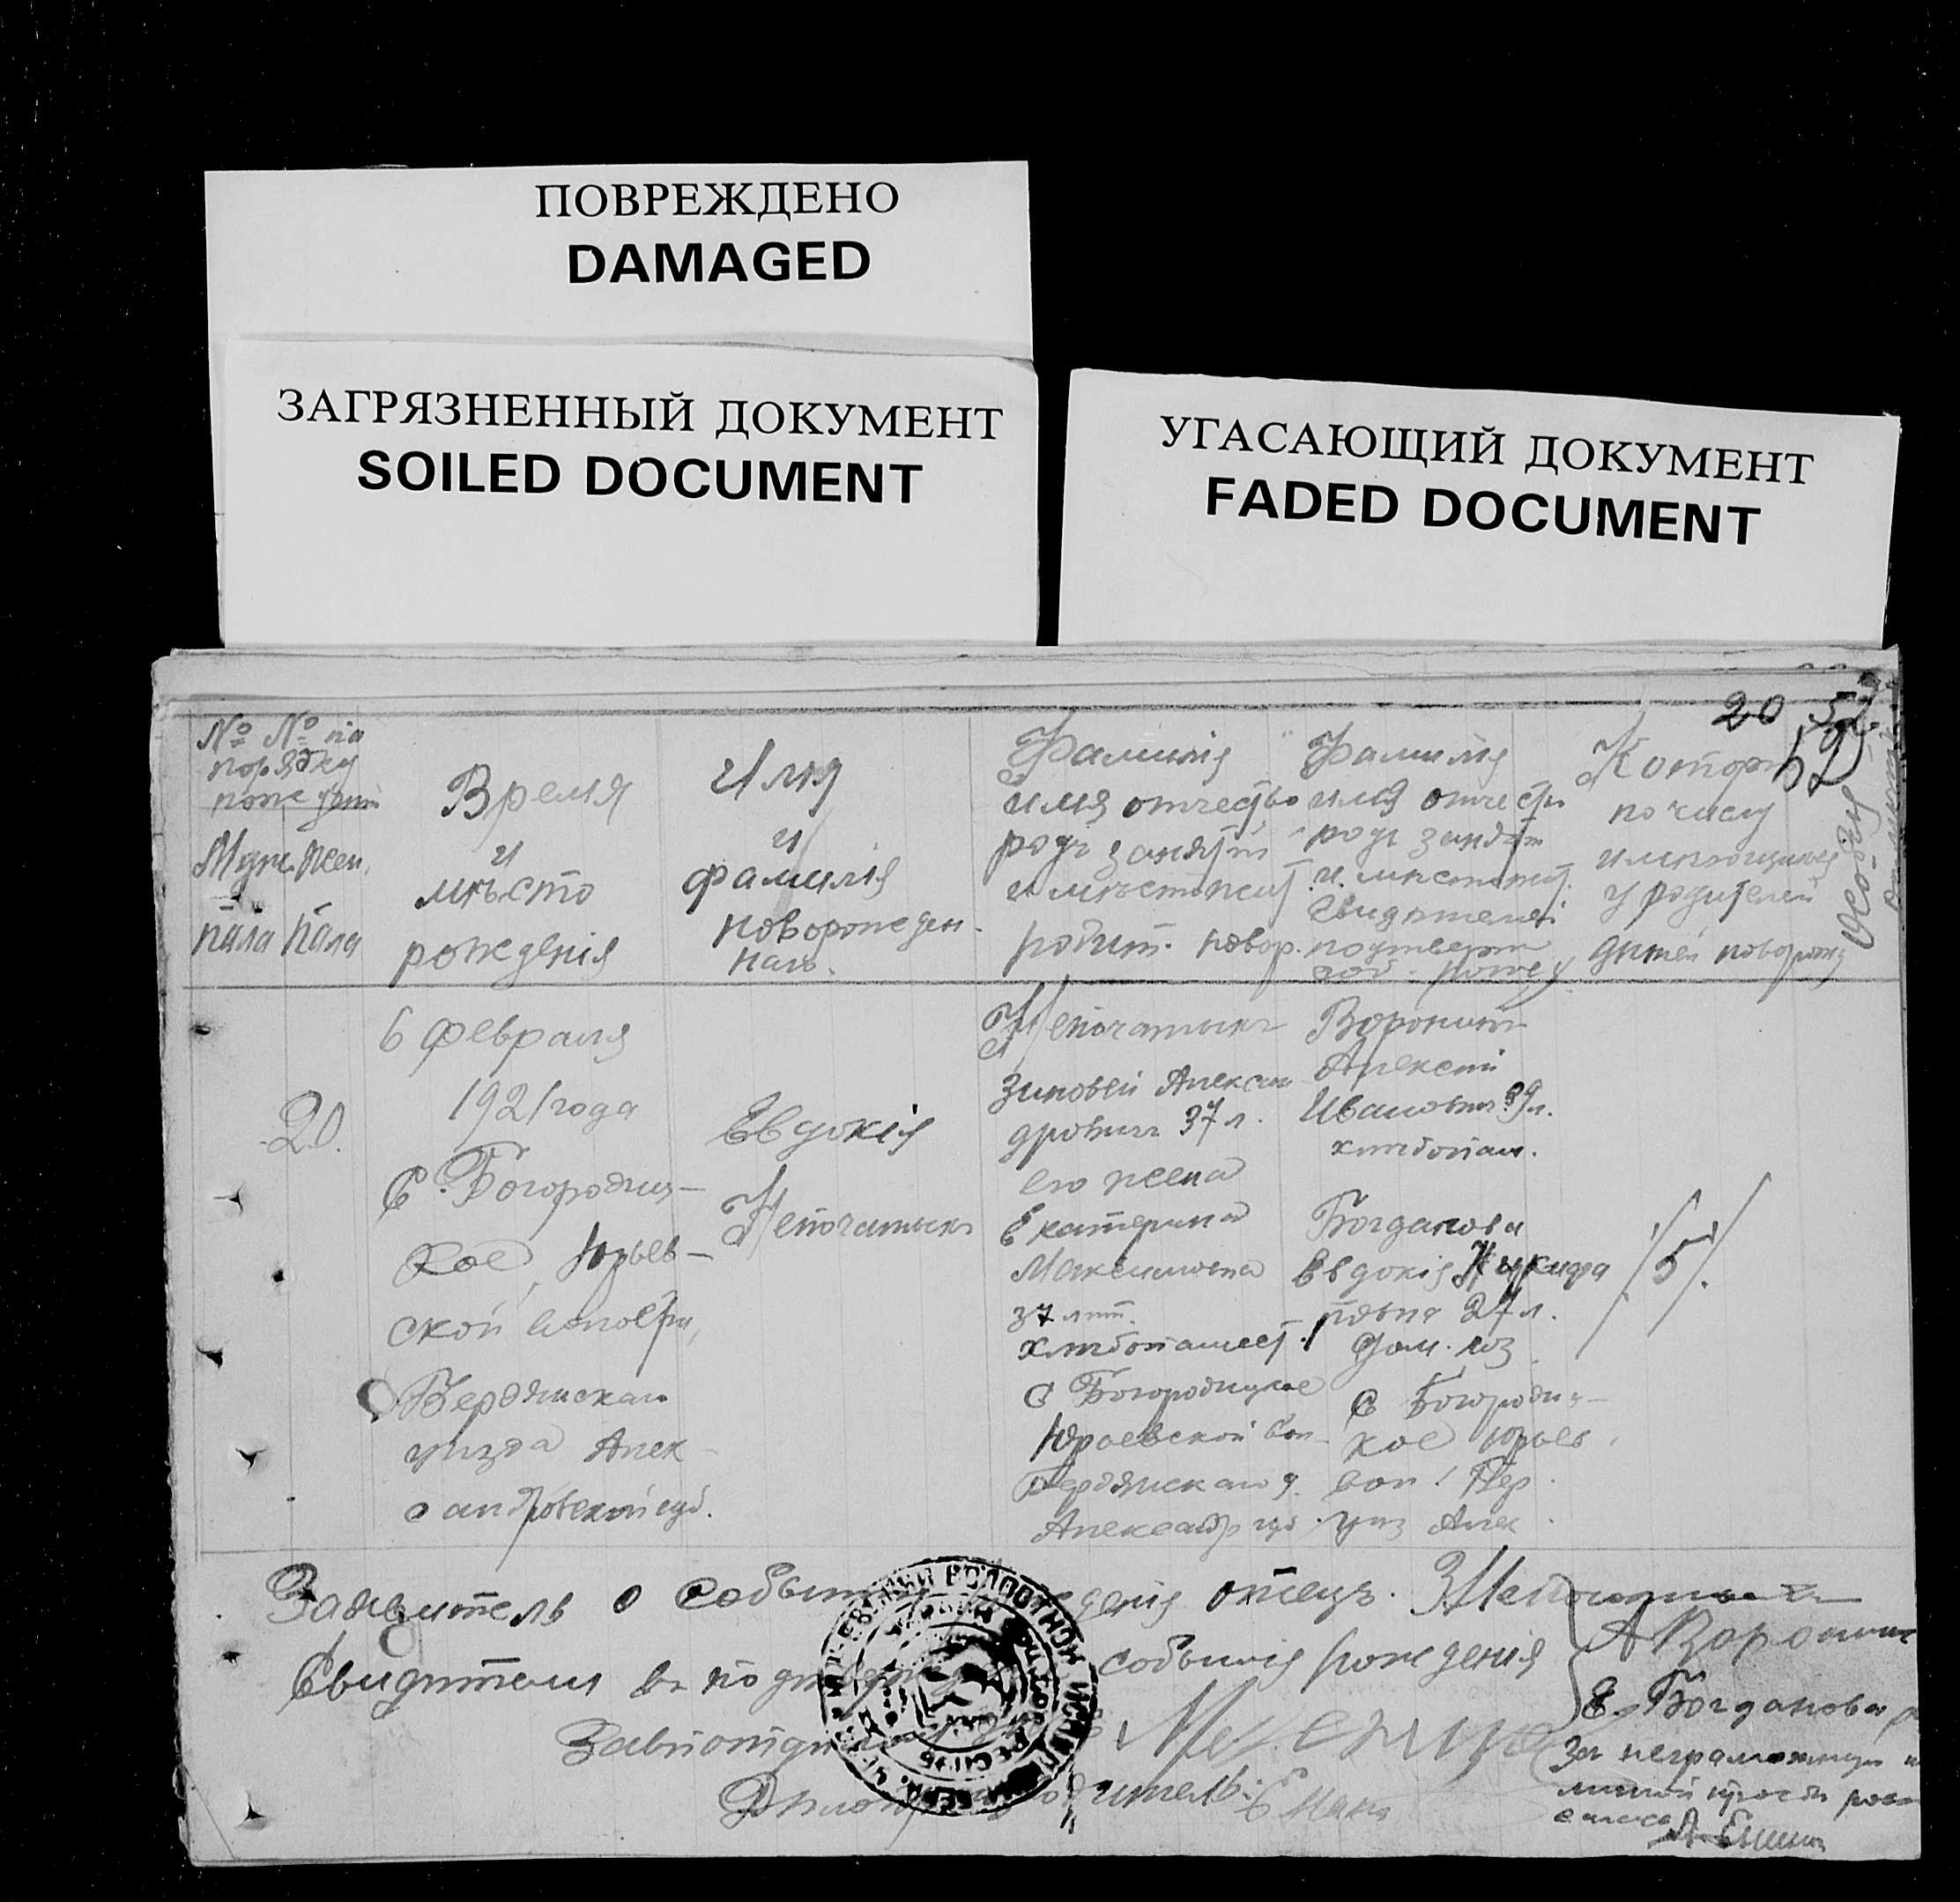 ПОВРЕЖДЕНО
DAMAGED
ЗАГРЯЗНЕННЫЙ ДОКУМЕНТ
SOILED DOCUMENT
УГАСАЮЩИЙ ДОКУМЕНТ
FADED DOCUMENT
20 52
62
№ № по
порядку
рожден
Муж. Жен.
пола пола
Время
и
мѣсто
рожденія
Имя
и
фамилія
новорожден-
наго.
Фамилія
имя отчество
родъ занятій
и мѣстожит
родит. новор.
Фамилія
имя отчеств
родъ занят
и мѣстожит.
свидѣтелей
подтверж
соб. рожд
Котор
по числу
имеющихся
у родителей
дитей новорож
20.
6 февраля
1921 года
С. Богородиц-
кое, Юрьев-
ской волости,
Бердянскаго
уѣзда Алек-
сандровской губ.
Евдокія
Непочатыхъ
Непочатыхъ
Зиновей Алексан
дровичъ 37 л.
его жена
Екатерина
Максимовна
37 лѣт.
хлѣбопашест.
С Богородицкое
Юрьевской вол
Бердянскаго у.
Александр губ.
Воронинъ
Алексѣй
Ивановичъ 39 л.
хлѣбопаш.
Богданова
Евдокія Никифо
ровна 27 л.
Дом. хоз
С Богородиц-
кое Юрьев.
вол. Бер
уѣз Алек
/5/.
Заявитель о событіи рожденія отецъ. З Непочатыхъ
Свидѣтели въ подтвержденіи событія рожденія
А Воронин
Е. Богданова
За неграмотную и
личной просьбе рос
Завѣ
Дѣлопроизводитель: